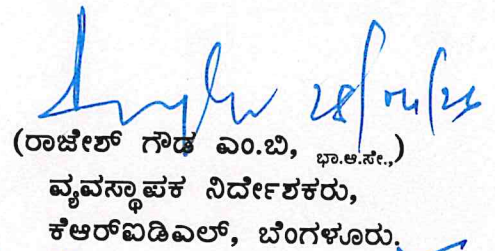 28/04/25
(ರಾಜೇಶ್ ಗೌಡ ಎಂ.ಬಿ, ಭಾ.ಆ.ಸೇ.,)
ವ್ಯವಸ್ಥಾಪಕ ನಿರ್ದೇಶಕರು,
ಕೆಆರ್‌ಐಡಿಎಲ್, ಬೆಂಗಳೂರು.